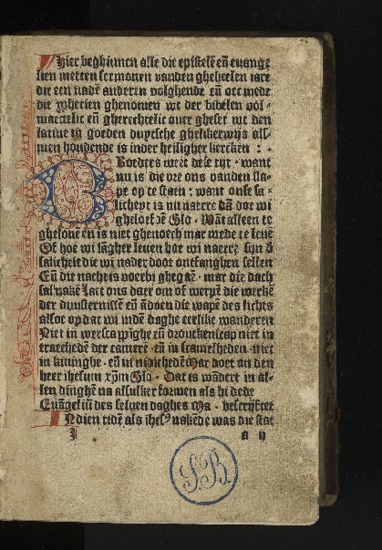 Hier beghinnen alle die epistelē eñ euange
lien metten sermonen vanden gheheelen iare
die een nadē anderen volghende eñ oec mede
die prhecien ghenomen wt der bibelen vol⸗
maectelic eñ gherechtelic ouer gheset wt den
latine in goeden duytsche ghelikerwijs als
men houdende is inder heiligher kercken :
BRoeders weet dese tijt · want
nu is die vre ons vanden sla⸗
pe op te staen : want onse sa⸗
licheyt is nu naerre dā doe wi
gheloefdē Glo · Wāt alleen te
ghelouē en is niet ghenoech mar mede te leuē
Of hoe wi lāgher leuen hoe wi naerre syn d̄
salicheit die wi nader doot ontfanghen sellen
Eñ die nacht is voerbi ghegāē · mar die dach
sal nakē Laet ons daer om of werpē die werkē
der duysternissē eñ ādoen die wapē des lichts
alsoe op dat wi indē daghe eerlike wanderen
Niet in werscapīghe eñ dronckenscap niet in
  der cameren eñ in scamelheden · niet
in kiuinghe · eñ in nidicheden Mar doet an den
heer ihesum xp̄m Glo · Dat is wādert in al⸗
len dinghē na alsulker formen als hi dede
Euāgeliū des seluen daghes Ma · bescrijfter
INdien tidē als ihesꝰ nakēde was die stat
a ij
S.B.